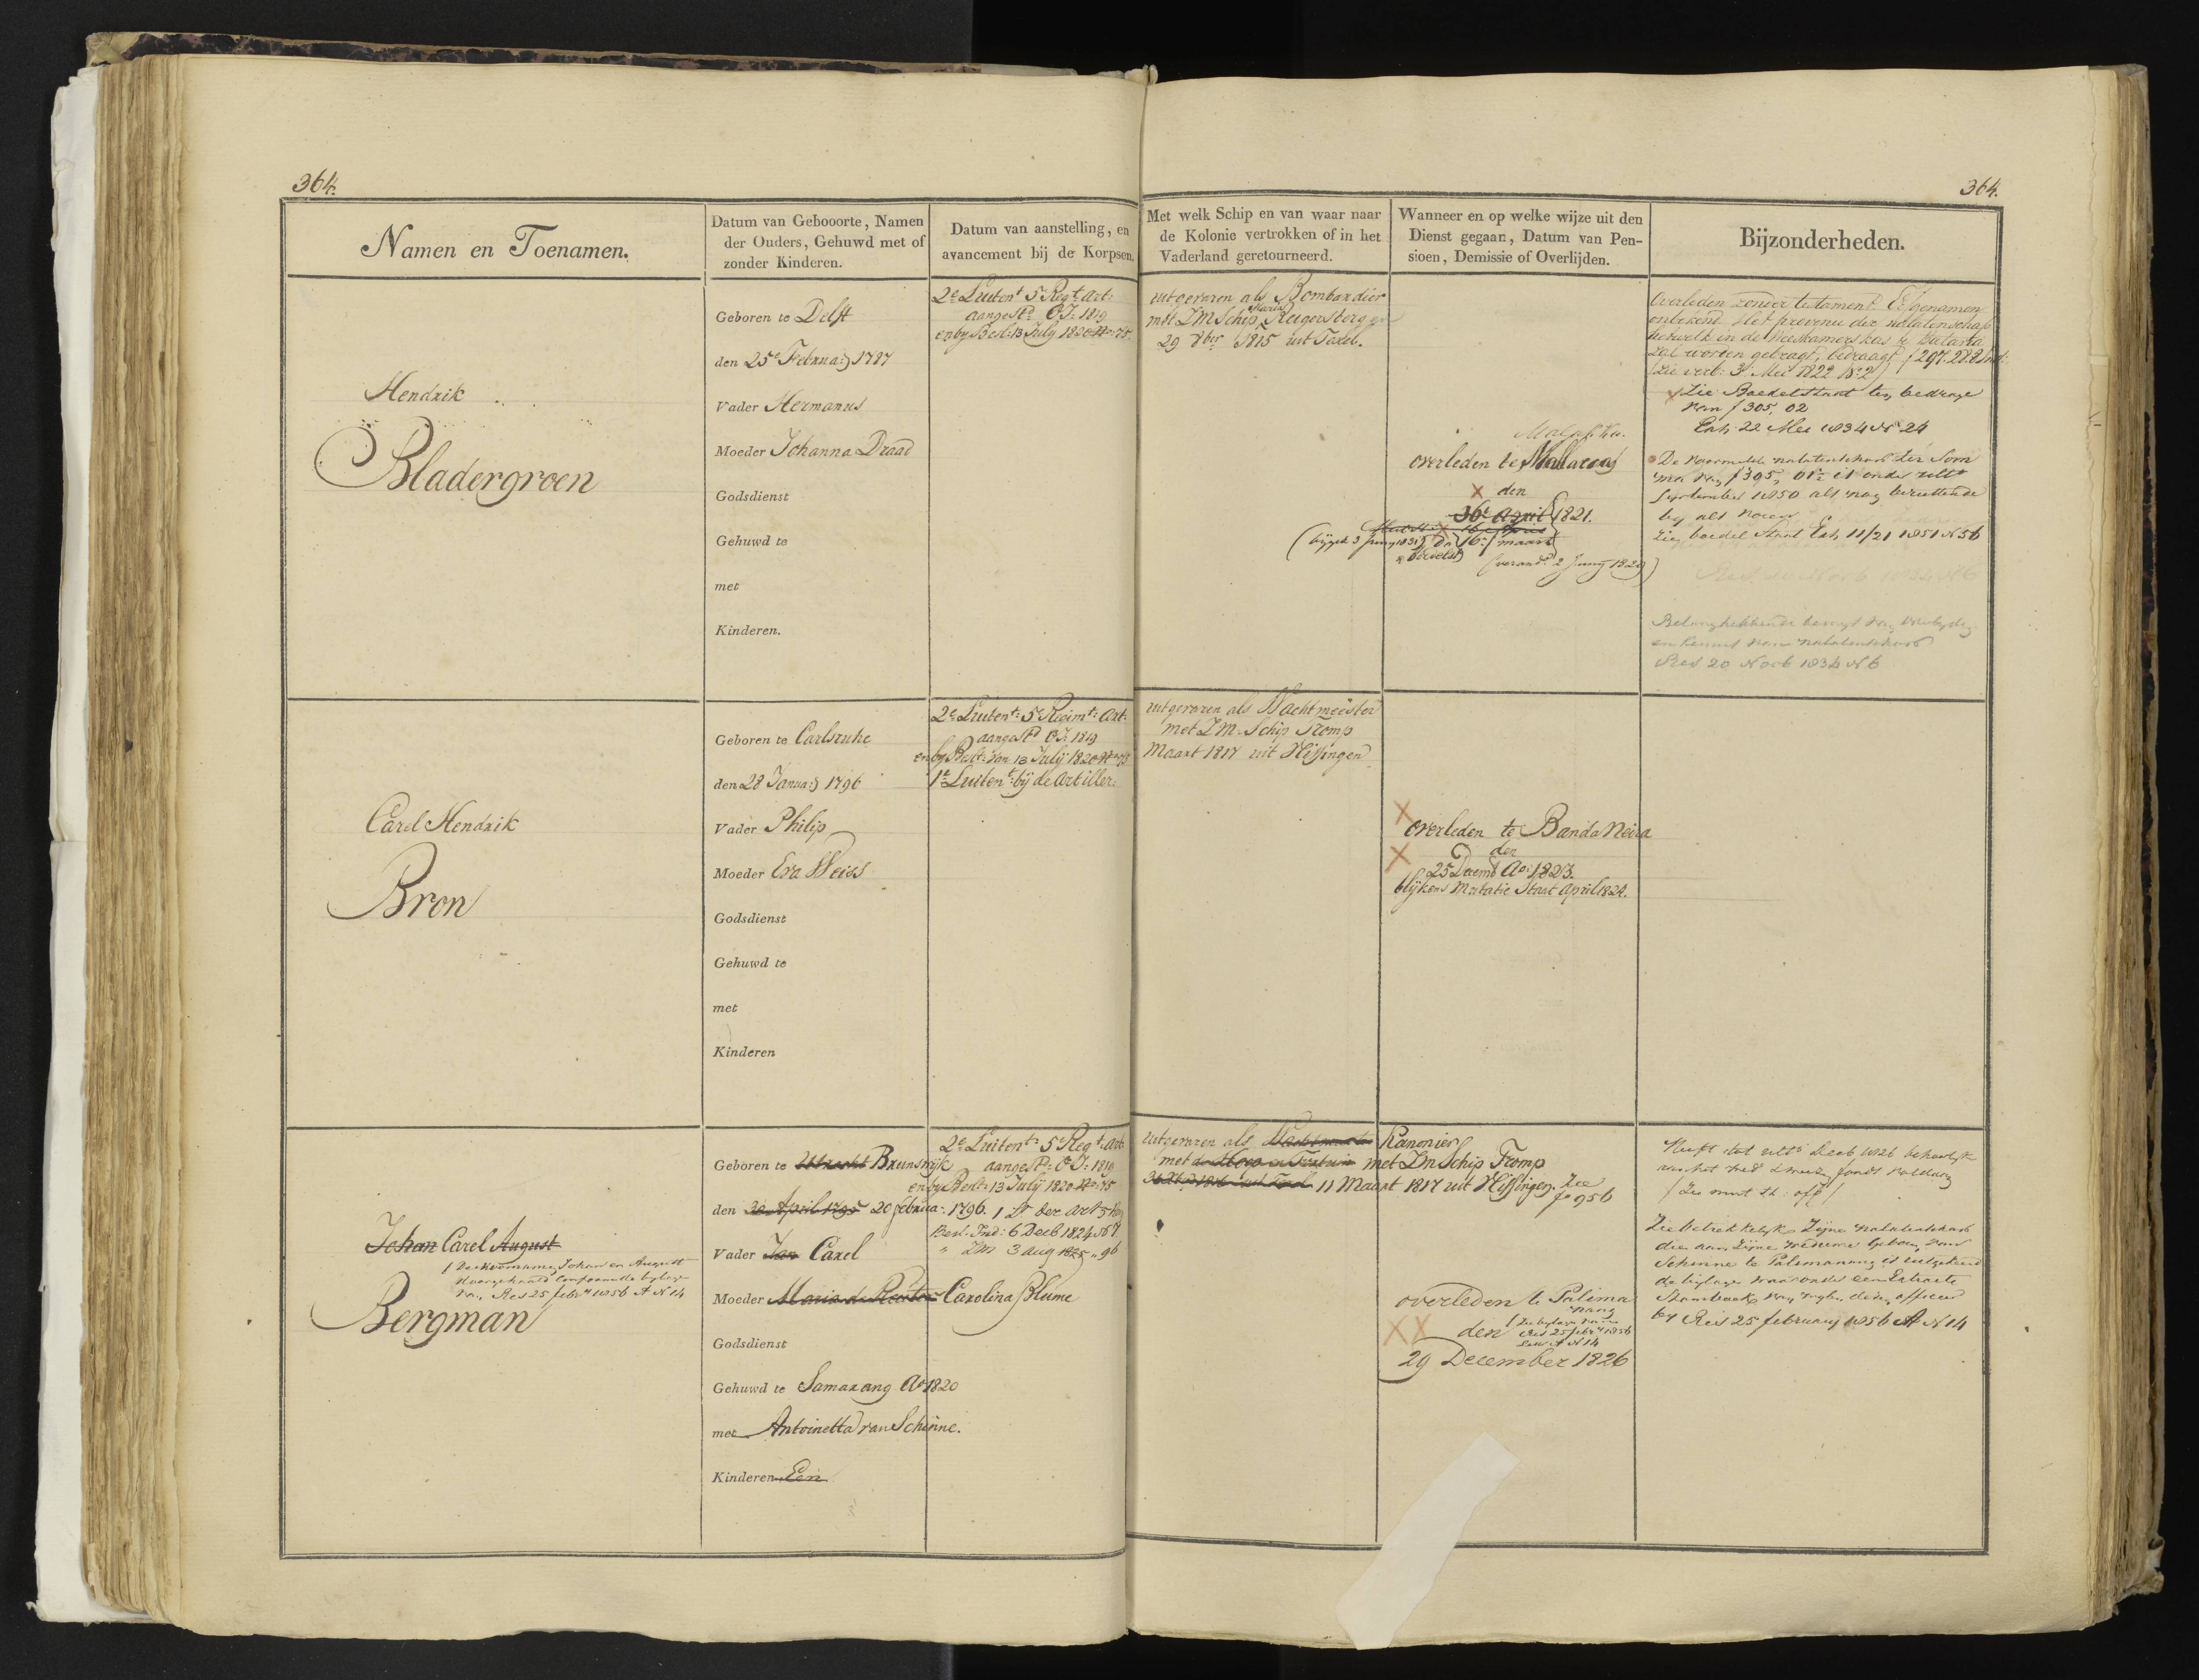 364.
364.
Namen en Toenamen.
Datum van Gebooorte, Namen
der Ouders, Gehuwd met of
zonder Kinderen.
Datum van aanstelling, en
avancement bij de Korpsen.
Met welk Schip en van waar naar
de Kolonie vertrokken of in het
Vaderland geretourneerd.
Wanneer en op welke wijze uit den
Dienst gegaan, Datum van Pen-
sioen, Demissie of Overlijden.
Bijzonderheden.
Hendrik
Bladergroen
Geboren te Delft
den 25e Februa: 1787
Vader Hermanus
Moeder Johanna Draad
Godsdienst
Gehuwd te
met
Kinderen.
2e Luitent 5e Regt Art:
aangestd O.I. 1819
en by Besl: 13 July 1820 No. 75.
uitgevaren als Bombardier
met ZM Schip Maria Reigersbergen
29 8ber 1815 uit Texel.
overleden te Mallacca
den
30e April 1821.
16e maart
(verandd 2 Juny 1829)
Overleden zonder testament Erfgenamen
onbekend Het provenu der nalatenschap
hetwelk in de Weeskamers kas te Batavia
zal worden gebragt, bedraagt f 297.28.8 Ind:
(Zie verb: 3 Mei 1822 No 2)
Zie Boedelstaat ten bedrage
van f 305,02
Exh 22 Mei 1834 No 24
De voormelde nalatenschap der Som
September 1850 als nog berustende
Zie, boedel Staat Exh 11/21 1851 No 56
Belanghebbende
Res 20 Novb 1834 No 6
Carel Hendrik
Bron
Geboren te Carlsruhe
den 28 Janua: 1796
Vader Philip
Moeder Eva Weiss
Godsdienst
Gehuwd te
met
Kinderen
2e Luitent: 5e Regimt: Art:
aangestd O.I: 1819
en by Beslt: van 13 July 1820 No 75
1e Luitent: bij de Artiller:
uitgevaren als Wachtmeester
met ZM. Schip Tromp
Maart 1817 uit Vlissingen
overleden te Banda Neira
den
25 Decemb Ao: 1823.
blijkens Mutatie Staat April 1824.
Johan Carel August
De voornamen Johan en August
Res 25 febr 1856 A N 14
Bergman
Geboren te Utrecht Brunswijk
den 20 April 1795 20 februa: 1796.
Vader Jan Carel
Moeder Maria de Reuter Carolina Blume
Godsdienst
Gehuwd te Samarang Ao 1820
met Antoinetta van Schinne.
Kinderen Een
2e Luitent: 5e Regt: Art
aangestd: O.I: 1819
en by Beslt: 13 July 1820 No: 75
1 Lt der Art
Besl. Ind: 6 Decb 1824 No 7
" ZM 3 Aug 1825 " 96
uitgevaren als Wachtmeester Kanonier
met met ZM Schip Tromp
11 Maart 1817 uit Vlissingen. Zie
fo 956
overleden te Palima
nang
den
Res 25 febr 1856
29 December 1826
Heeft tot ulto Decb 1826 behoorlyk
Zie betrekkelyk Zijne nalatenschap
die aan Zijne weduwe geboren van
Schinne te Palimanang is uitgekeerd
de bijlage waaronder een Extract
Stamboek van officier
by Res 25 february 1856 A N 14